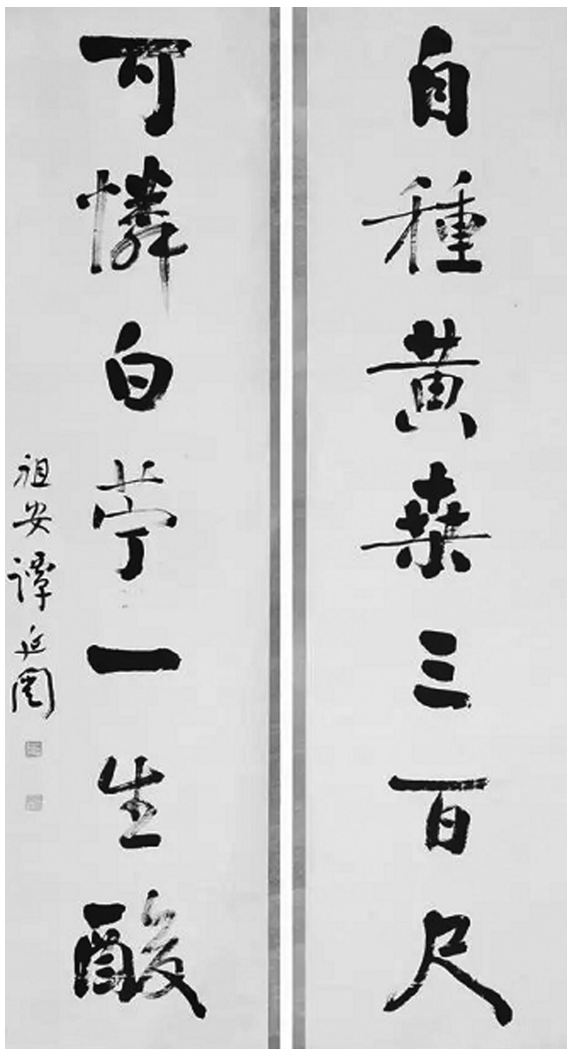 自種黃桑三百尺
可憐白苧一生酸
祖安譚延闓